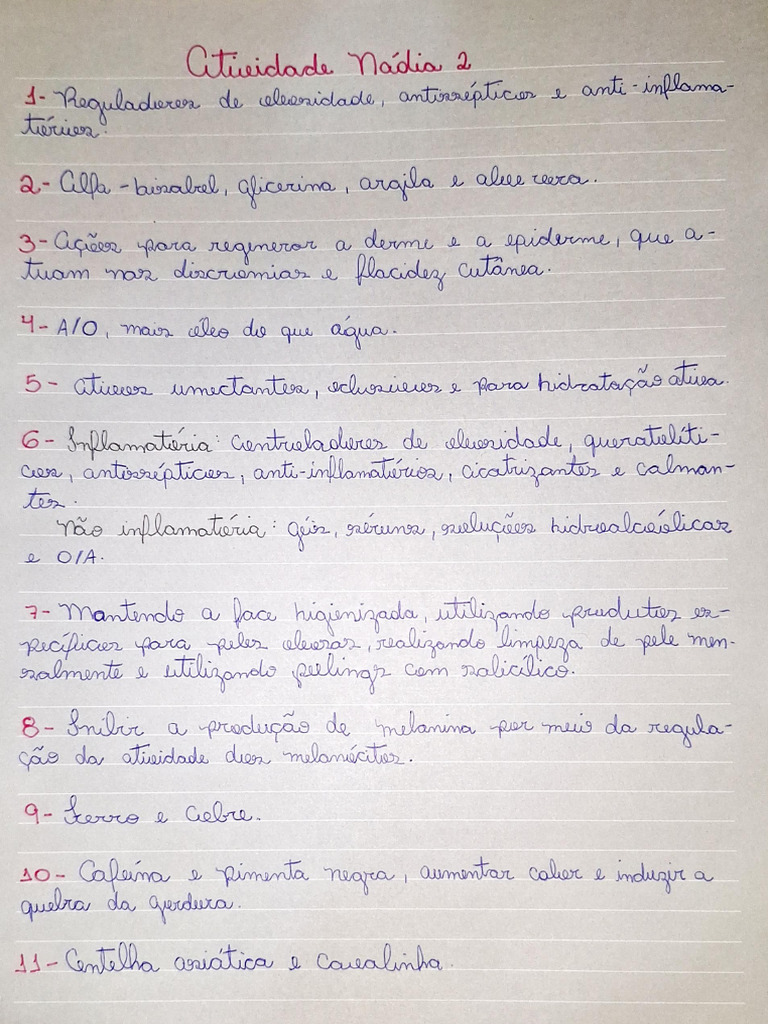 Atividade Nádia 2
1- Reguladores de oleosidade, antissépticos e anti-inflama-
tórios.
2- Alfa-bisabol, glicerina, argila e aloe vera.
3- Ações para regenerar a derme e a epiderme, que a-
tuam nas discromias e flacidez cutânea.
4- A/O, mais óleo do que água.
5- Ativos umectantes, oclusivos e para hidratação ativa.
6- Inflamatória: Controladores de oleosidade, queratolíti-
cos, antissépticos, anti-inflamatórios, cicatrizantes e calman-
tes.
Não inflamatória: géis, séruns, soluções hidroalcoólicas
e O/A.
7- Mantendo a face higienizada, utilizando produtos es-
pecíficos para peles oleosas, realizando limpeza de pele men-
salmente e utilizando peelings com salicílico.
8- Inibir a produção de melanina por meio da regula-
ção da atividade dos melanócitos.
9- Ferro e Cobre.
10- Cafeína e pimenta negra, aumentar calor e induzir a
quebra da gordura.
11- Centelha asiática e Cavalinha.